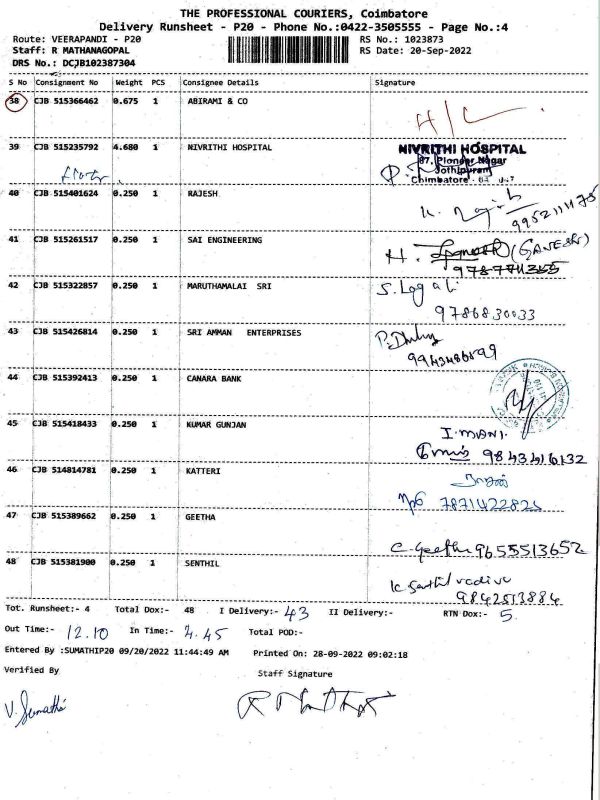 THE PROFESSIONAL COURIERS, Coimbatore
Delivery Runsheet - P20 - Phone No.:0422-3505555 - Page No.:4
Route: VEERAPANDI - P20 RS No.: 1023873
Staff: R MATHANAGOPAL RS Date: 20-Sep-2022
DRS No.: DCJB102387304
S No Consignment No Weight PCS Consignee Details Signature
38 CJB 515366462 0.675 1 ABIRAMI & CO
39 CJB 515235792 4.680 1 NIVRITHI HOSPITAL NIVRITHI HOSPITAL
Pioneer Nagar
Jothipuram
40 CJB 515401624 0.250 1 RAJESH
9952111175
41 CJB 515261517 0.250 1 SAI ENGINEERING H. (GANESH)
42 CJB 515322857 0.250 1 MARUTHAMALAI SRI
9786830033
43 CJB 515426814 0.250 1 SRI AMMAN ENTERPRISES
44 CJB 515392413 0.250 1 CANARA BANK
45 CJB 515418433 0.250 1 KUMAR GUNJAN I. MANI.
46 CJB 514814781 0.250 1 KATTERI
47 CJB 515389662 0.250 1 GEETHA
C. Geetha 9655513652
48 CJB 515381900 0.250 1 SENTHIL
9842513884
Tot. Runsheet:- 4 Total Dox:- 48 I Delivery:- 43 II Delivery:- RTN Dox:- 5
Out Time:- 12.10 In Time:- 4.45 Total POD:-
Entered By :SUMATHIP20 09/20/2022 11:44:49 AM Printed On: 28-09-2022 09:02:18
Verified By Staff Signature
V. Sumathi